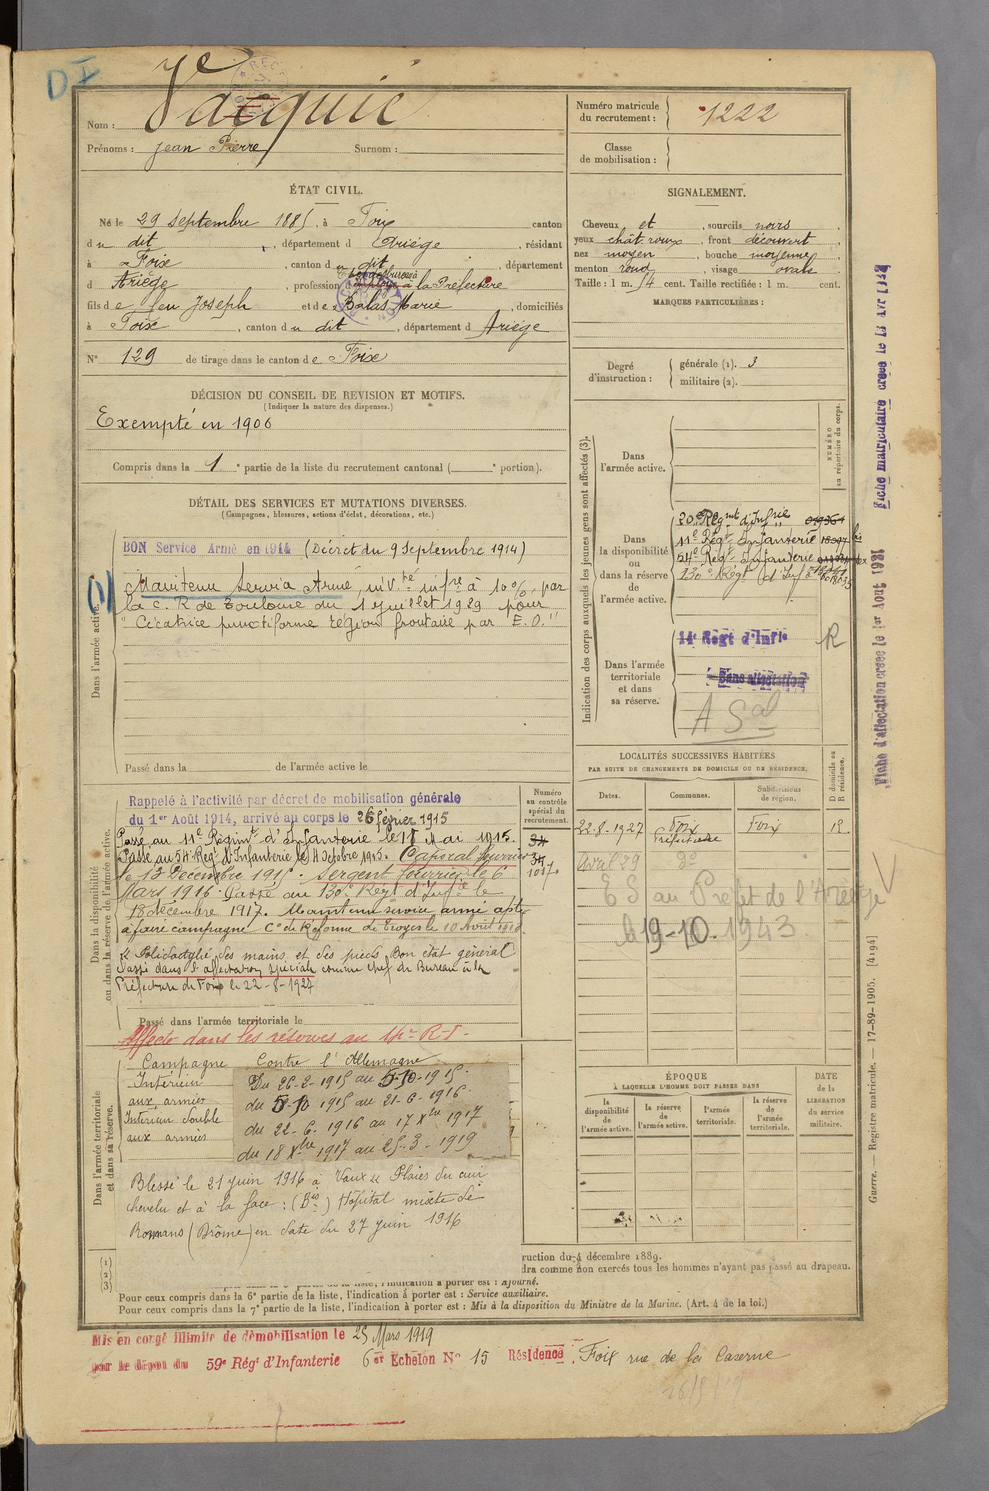 DI
Nom : Vacquié
Prénoms : Jean Pierre Surnom :
Numéro matricule du recrutement : 1222
Classe de mobilisation :
ÉTAT CIVIL.
Né le 29 septembre 1885, à Foix canton
du dit, département d Ariège, résidant
à Foix, canton du dit, département
d Ariège, profession à la Préfecture
fils de feu Joseph et de Balas Marie, domiciliés
à Foix, canton du dit, département d Ariège
N° 129 de tirage dans le canton de Foix
SIGNALEMENT.
Cheveux et, sourcils noirs
yeux chât. roux, front découvert
nez moyen, bouche moyenne
menton rond, visage ovale
Taille : 1 m. 54 cent. Taille rectifiée : 1 m. cent.
MARQUES PARTICULIÈRES :
Degré d'instruction : générale (1). 3
militaire (2).
DÉCISION DU CONSEIL DE REVISION ET MOTIFS.
(Indiquer la nature des dispenses.)
Exempté en 1906
Compris dans la 1e partie de la liste du recrutement cantonal ( e portion).
DÉTAIL DES SERVICES ET MUTATIONS DIVERSES.
(Campagnes, blessures, actions d'éclat, décorations, etc.)
Dans l'armée active.
BON Service Armé en 1914 (Décret du 9 Septembre 1914)
Maintenu Service Armé, inv.té inf.re à 10%, par
la C. R de Toulouse du 1 Juillet 1929 pour
"Cicatrice punctiforme région frontale par E.O."
Passé dans la de l'armée active le
Indication des corps auxquels les jeunes gens sont affectés (3).
NUMÉRO au répertoire du corps.
Dans l'armée active.
Dans la disponibilité ou dans la réserve de l'armée active.
20e Régmt d'Infrie
11e Régt Infanterie
54e Régt Infanterie
130e Régt d'Infie
Dans l'armée territoriale et dans sa réserve.
14e Régt d'Infie R
Sans affectation
A Sal
Fiche matriculaire créée le 13 Avr 1932
Fiche d'affectation créée le 1er Août 1931
LOCALITÉS SUCCESSIVES HABITÉES
PAR SUITE DE CHANGEMENTS DE DOMICILE OU DE RÉSIDENCE.
D domicile ou R résidence.
Dates. Communes. Subdivisions de région.
22-8-1927 Foix Préfecture Foix R.
Avril 29 do
ES au Préfet de l'Ariège
le 19-10-1943
Dans la disponibilité ou dans la réserve de l'armée active.
Numéro au contrôle spécial du recrutement.
Rappelé à l'activité par décret de mobilisation générale
du 1er Août 1914, arrivé au corps le 26 février 1915
Passé au 11e Régimt d'Infanterie le 18 Mai 1915.
Passé au 54e Régt d'Infanterie le 4 Octobre 1915. Caporal fourrier
le 13 Décembre 1915. Sergent fourrier le 6
Mars 1916. Passé au 130e Régt d'Infie le
18 décembre 1917. Maintenu service armé apte
à faire campagne Con de Réforme de Troyes le 10 Avril 1918
"Polidactylie des mains et des pieds Bon état général"
Passé dans l'affectation spéciale comme chef de Bureau à la
Préfecture de Foix le 22-8-1927
Passé dans l'armée territoriale le
Affecté dans les réserves au 14e R-I-
Dans l'armée territoriale et dans sa réserve.
Campagne Contre l'Allemagne
Intérieur Du 26-2-1915 au 5-10-1915
aux armées du 5-10 1915 au 21-6-1916
Intérieur double du 22-6-1916 au 17 Xbre 1917
aux armées du 18 Xbre 1917 au 25-3-1919
Blessé le 21 juin 1916 à Vaux "Plaies du cuir
chevelu et à la face : Hôpital mixte de
Romans (Drôme) en date du 27 juin 1916
ÉPOQUE
À LAQUELLE L'HOMME DOIT PASSER DANS
la disponibilité de l'armée active. la réserve de l'armée active. l'armée territoriale. la réserve de l'armée territoriale.
DATE de la LIBÉRATION du service militaire.
(1)
(2)
(3)
ruction du 4 décembre 1889.
dra comme non exercés tous les hommes n'ayant pas passé au drapeau.
l'indication à porter est : Ajourné.
Pour ceux compris dans la 6e partie de la liste, l'indication à porter est : Service auxiliaire.
Pour ceux compris dans la 7e partie de la liste, l'indication à porter est : Mis à la disposition du Ministre de la Marine. (Art. 4 de la loi.)
Guerre. — Registre matricule. — 17-89-1905. [4194]
Mis en congé illimité de démobilisation le 25 Mars 1919
par le dépôt du 59e Régt d'Infanterie 6e Echelon N° 15 Résidence, Foix rue de la Caserne